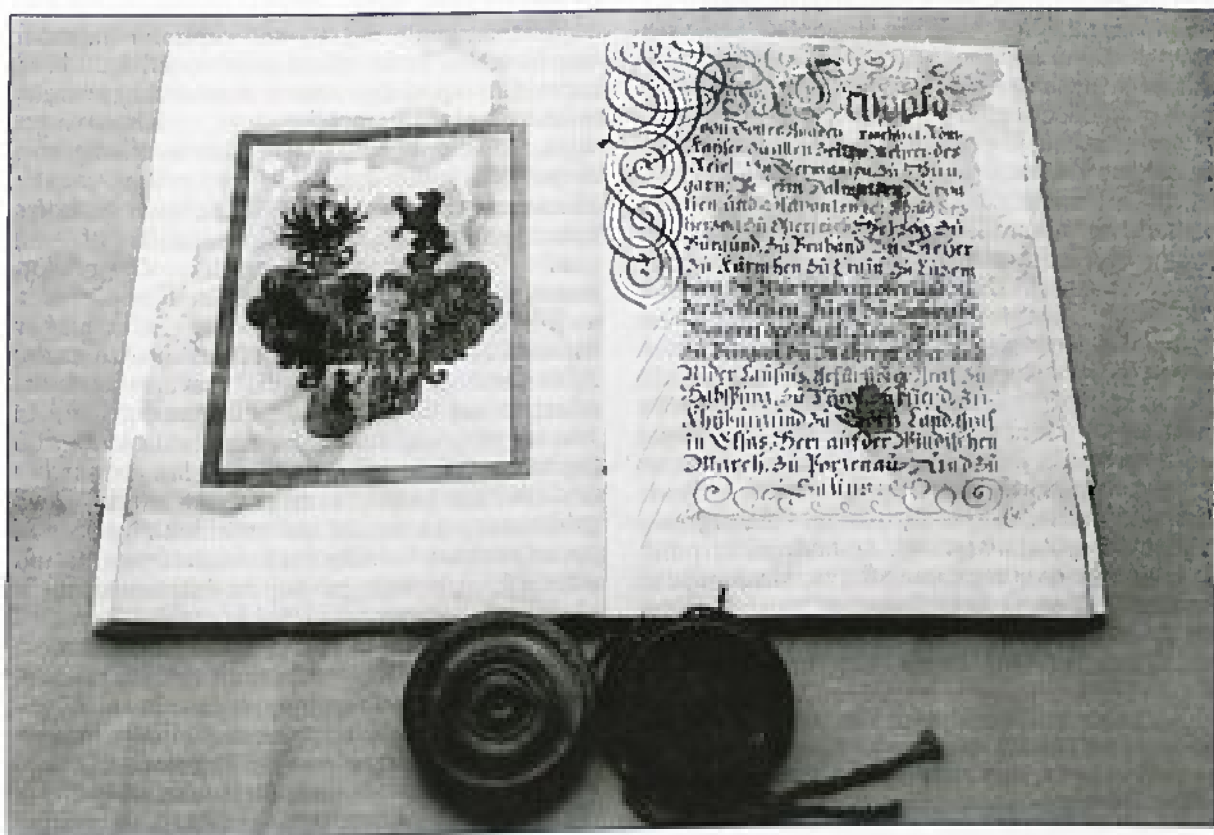 von Gottes Gnaden erwehlter Röm.
Kayser zu allen Zeiten Mehrer des
Reichs In Germanien, zu Hun,
garn, Dalmatien, Croa
tien und Sclavonien König
herzog zu Österreich, Hertzog zu
Burgund, zu Braband zu Steyer
zu Kärnthen zu Crain zu Lüzem
burg zu Würtemberg ober und
der Schlesien, Fürst zu Schwabe
des Heil: Röm: Reichs
zu Burgau zu Mähren ober und
Nider Lausnitz, Gefürsteter Graf zu
Habspurg, zu Tyrol, zu Pfierd, zu
Khyburg und zu Görtz Landgraf
in Elsas, Herr auf der Windischen
March, zu Portenau, und zu
Salins